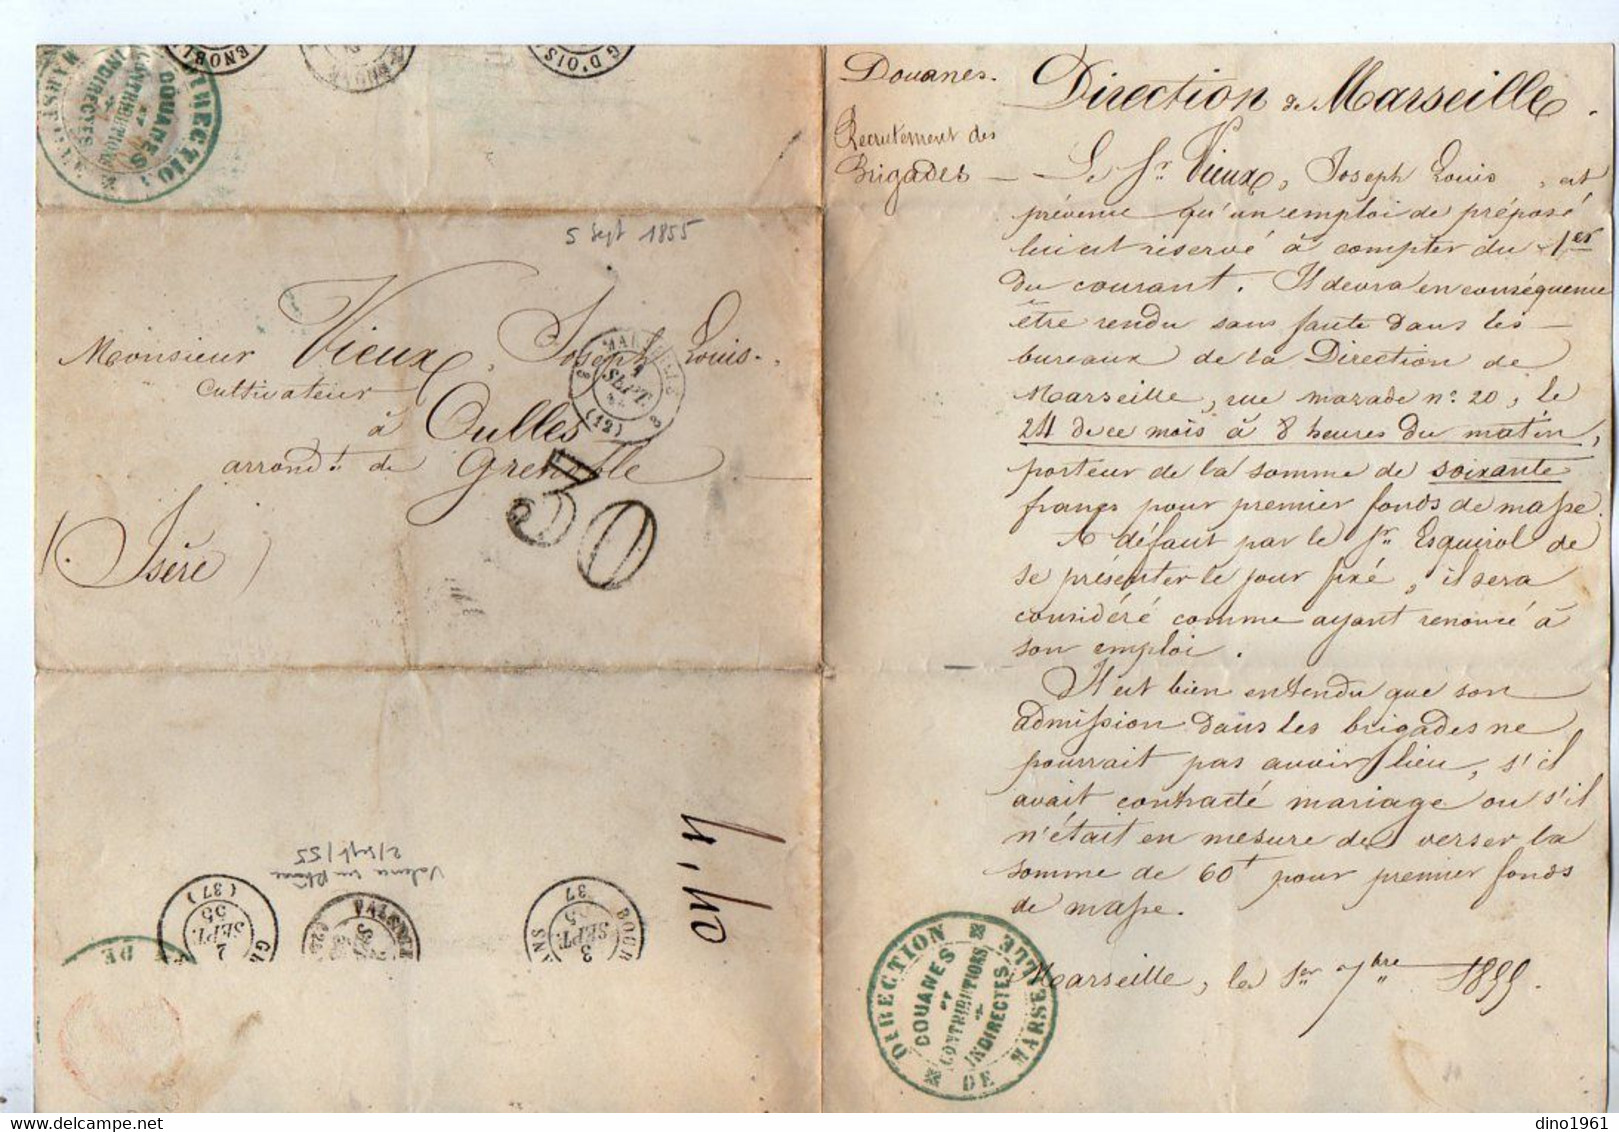 DIRECTION
DOUANES
ET
CONTRIBUTIONS
INDIRECTES
G D'OIS
5 Sept 1855
Monsieur Vieux, Joseph Louis.
Cultivateur
à Oulles
arrondt de Grenoble
(Isère)
SEPT.
(12)
30
4,40
Valence sur Rhône
2/Sept/55
2
SEPT.
55
(37)
3
SEPT.
55
37
DE
Douanes.
Recrutement des
Brigades
Direction de Marseille.
Le Sr. Vieux, Joseph Louis, est
prévenu qu'un emploi de préposé
lui est réservé à compter du 1er
du courant. Il devra en conséquence
être rendu sans faute dans les
bureaux de la Direction de
Marseille, rue marade no. 20, le
24 de ce mois à 8 heures du matin,
porteur de la somme de soixante
francs pour premier fonds de masse.
A défaut par le Sr. Esquirol de
se présenter le jour fixé, il sera
considéré comme ayant renoncé à
son emploi.
Il est bien entendu que son
admission dans les brigades ne
pourrait pas avoir lieu, s'il
avait contracté mariage ou s'il
n'était en mesure de verser la
somme de 60f pour premier fonds
de masse.
Marseille, le 1er 7bre 1855.
DIRECTION
DOUANES
ET
CONTRIBUTIONS
INDIRECTES
DE MARSEILLE
dino1961